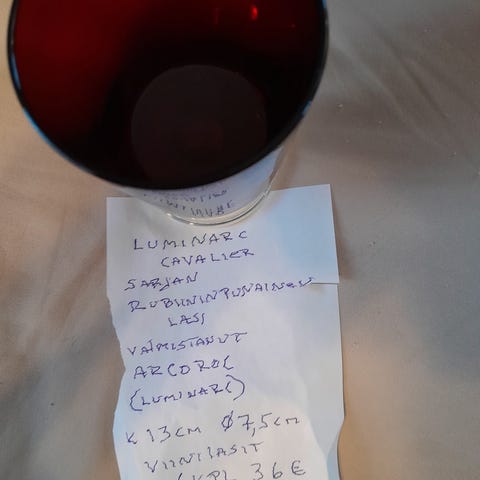 LUMINARC
CAVALIER
SARJAN
RUBIININPUNAINEN
LASI
VALMISTANUT
ARCOROC
(LUMINARC)
K 13CM Ø7,5CM
VIINILASIT
KPL 36€